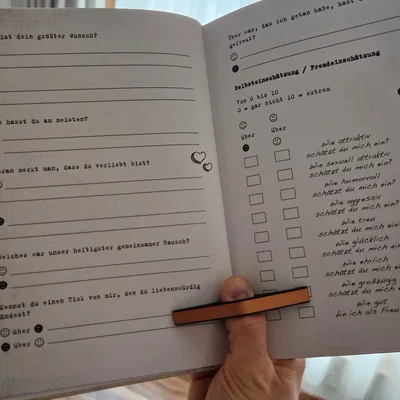 ist dein größter Wunsch?
hasst du am meisten?
oran merkt man, dass du verliebt bist?
Welches war unser heftigster gemeinsamer Rausch?
Kennst du einen Tick von mir, den du liebenswürdig
findest?
über
über
Über was, das ich getan habe, hast
gefreut?
Selbsteinschätzung / Fremdeinschätzung
Von 0 bis 10
0 = gar nicht 10 = extrem
über über
Wie attraktiv
schätzt du mich ein?
Wie sexuell attraktiv
schätzt du mich ein?
Wie humorvoll
schätzt du mich ein?
Wie aggressiv
schätzt du mich ein?
Wie treu
schätzt du mich ein?
Wie glücklich
schätzt du mich ein?
Wie ehrlich
schätzt du mich ein?
Wie großzügig
schätzt du mich e
Wie gut
bin ich als Freu